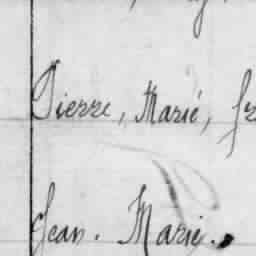 Pierre, Marie, fr
Jean. Marie.